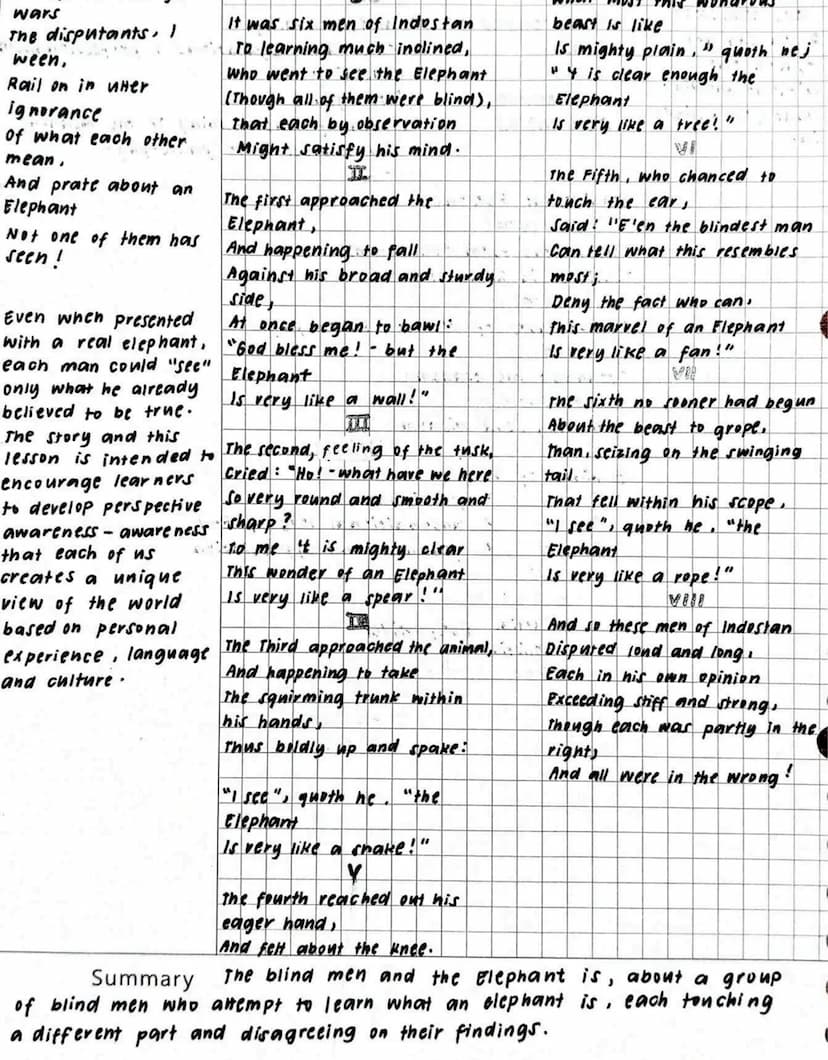 wars
The disputants, I
ween,
Rail on in utter
ignorance
of what each other
mean,
And prate about an
Elephant
Not one of them has
seen!
Even when presented
with a real elephant,
each man could "see"
only what he already
believed to be true.
The story and this
lesson is intended to
encourage learners
to develop perspective
awareness - awareness
that each of us
creates a unique
view of the world
based on personal
experience, language
and culture.
It was six men of Indostan
To learning much inclined,
who went to see the Elephant
(Though all of them were blind),
That each by observation
Might satisfy his mind.
II
The first approached the
Elephant,
And happening to fall
Against his broad and sturdy
side,
At once began to bawl:
"God bless me! - but the
Elephant
Is very like a wall!"
III
The second, feeling of the tusk,
Cried: "Ho! - what have we here
So very round and smooth and
sharp?
To me 't is mighty clear
This wonder of an Elephant
Is very like a spear!"
IV
The Third approached the animal,
And happening to take
The squirming trunk within
his hands,
Thus boldly up and spake:
"I see", quoth he. "the
Elephant
Is very like a snake!"
V
The fourth reached out his
eager hand,
And felt about the knee.
What most this wondrous
beast is like
Is mighty plain," quoth he;
"'t is clear enough the
Elephant
Is very like a tree!"
VI
The Fifth, who chanced to
touch the ear,
Said: "E'en the blindest man
Can tell what this resembles
most;
Deny the fact who can,
This marvel of an Elephant
Is very like a fan!"
VII
The sixth no sooner had begun
About the beast to grope,
Than, seizing on the swinging
tail
That fell within his scope,
"I see", quoth he, "the
Elephant
Is very like a rope!"
VIII
And so these men of Indostan
Disputed loud and long,
Each in his own opinion
Exceeding stiff and strong,
Though each was partly in the
right,
And all were in the wrong!
Summary The blind men and the Elephant is, about a group
of blind men who attempt to learn what an elephant is, each touching
a different part and disagreeing on their findings.